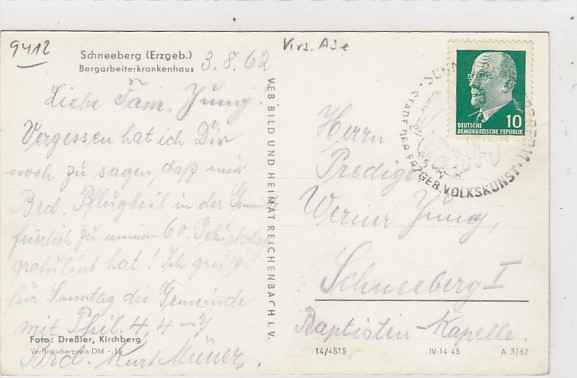 9412
Schneeberg (Erzgeb.) 3.8.62
Bergarbeiterkrankenhaus
Liebe Fam. Jung.
Vergessen hat ich Dir
noch zu sagen, daß mir
Brd. in der
zu meinem 60.
gratuliert hat! Ich
für Sonntag die Gemeinde
mit Phil. 4, 4-7
Foto: Dreßler, Kirchberg
Verbraucherpreis DM -,15
Brd. Kurt
VEB BILD UND HEIMAT REICHENBACH I. V.
10
DEUTSCHE
DEMOKRATISCHE REPUBLIK
STADT DER ERZGEB. VOLKSKUNST
Herrn
Prediger
Werner Jung,
Schneeberg I
Baptisten-Kapelle.
14/4515 IV-14-45 A 3/62